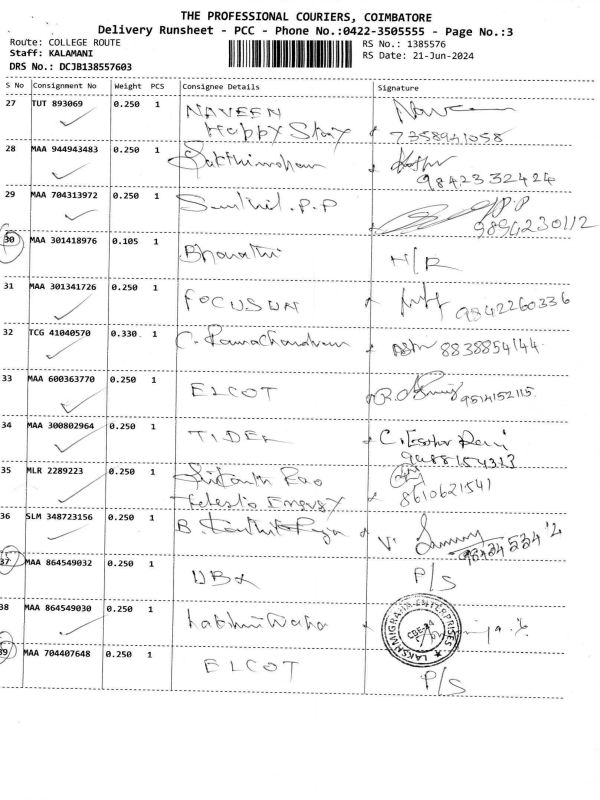 THE PROFESSIONAL COURIERS, COIMBATORE
Delivery Runsheet - PCC - Phone No.:0422-3505555 - Page No.:3
Route: COLLEGE ROUTE RS No.: 1385576
Staff: KALAMANI RS Date: 21-Jun-2024
DRS No.: DCJB138557603
S No Consignment No Weight PCS Consignee Details Signature
27 TUT 893069 0.250 1 NAVEEN Naveen
Happy Stay 7358941058
28 MAA 944943483 0.250 1 Sakthimohan
9842332424
29 MAA 704313972 0.250 1 Senthil.P.P
9894230112
30 MAA 301418976 0.105 1 Bharathi N/R
31 MAA 301341726 0.250 1 FOCUSUN 9842260336
32 TCG 41040570 0.330 1 C. Ramachandran 8838854144
33 MAA 600363770 0.250 1 ELCOT 9514152115
34 MAA 300802964 0.250 1 TIDEL
9488154323
35 MLR 2289223 0.250 1 Rao
Energy 8610621541
36 SLM 348723156 0.250 1 B.
37 MAA 864549032 0.250 1 P/S
38 MAA 864549030 0.250 1
LAKSHMIGRAHA ENTERPRISES
CBE-14
39 MAA 704407648 0.250 1 ELCOT P/S